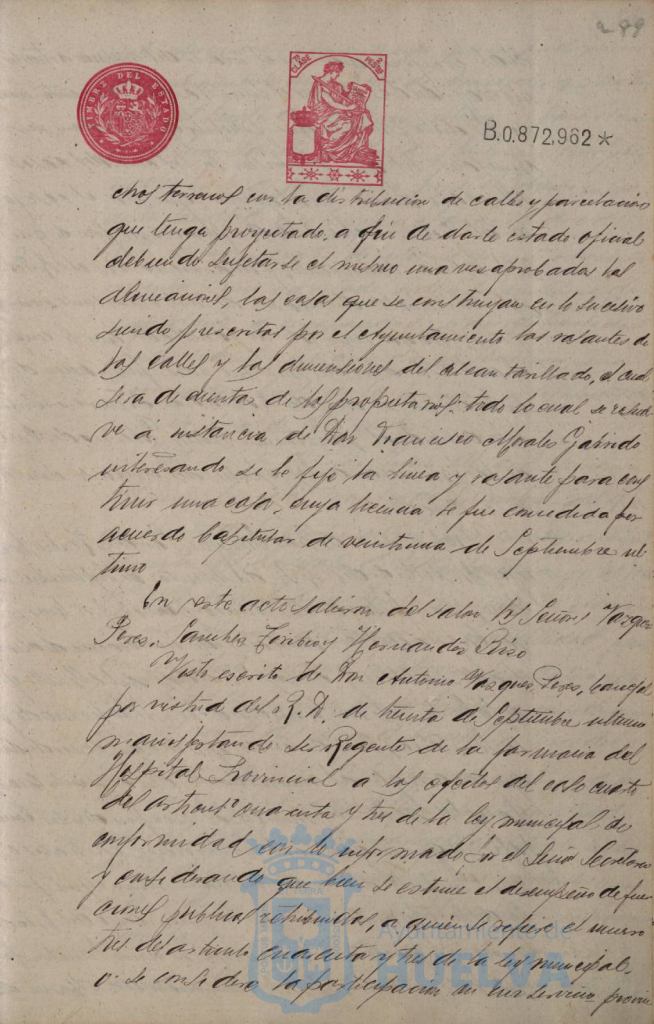 289
TIMBRE DEL ESTADO
B.0.872,962 *
chos terrenos con la distribucion de calles y parcelacion
que tenga proyectado, a fin de darle estado oficial
debiendo sujetarse el mismo una ves aprobadas las
alineaciones, las casas que se construyan en lo sucesivo
siendo prescritas por el Ayuntamiento las rasantes de
las calles y las dimensiones del alcantarillado, el cual
sera de cuenta de los propietarios: todo lo cual se resuel
ve á instancia de Don Francisco Morales Garrido
interesando se le fije la linea y rasante para cons
truir una casa, cuya licencia le fue concedida por
acuerdo Capitular de veintiuno de Septiembre ul
timo
En este acto salieron del salon los Señores Vazquez
Peres, Sanchez Toribio y Hernandez Piso
Visto escrito de Don Antonio Vazquez Peres, Concejal
por virtud del R. D. de treinta de Septiembre ultimo
manifestando ser Regente de la farmacia del
Hospital Provincial a los efectos del caso cuarto
del articulo cuarenta y tres de la ley municipal, de
conformidad con lo informado por el Señor Secretario
y considerando que bien se estime el desempeño de fun
ciones publicas retribuidas, a quien se refiere el numero
tres del articulo cuarenta y tres de la ley municipal,
o se considere la participacion en un servicio provin
Ayuntamiento de
HUELVA